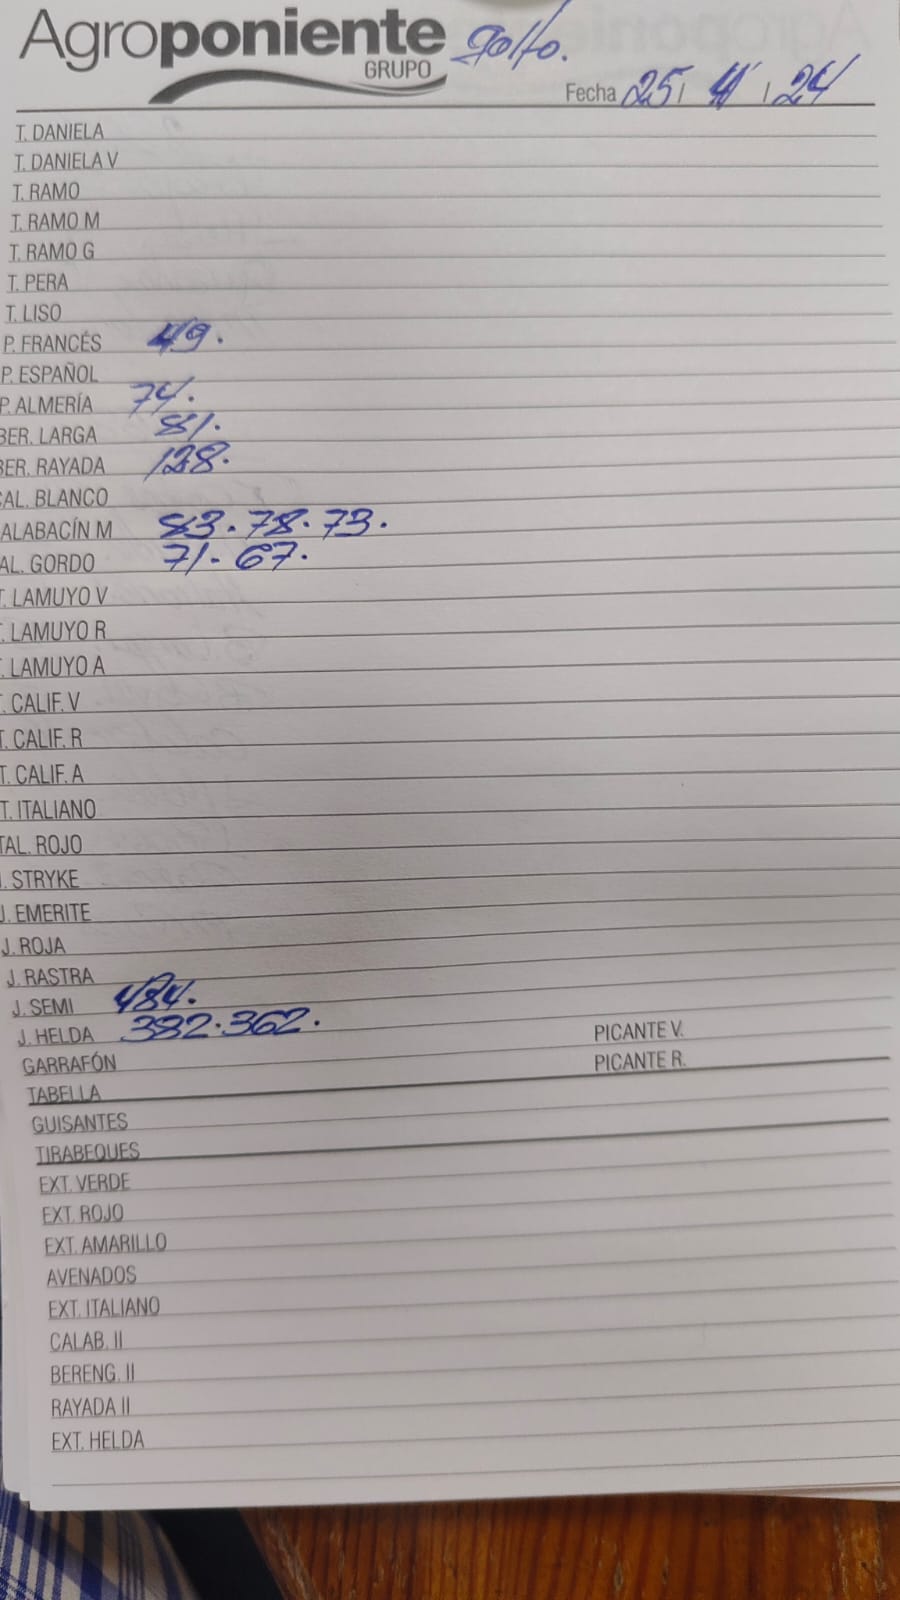 Agroponiente golfo.
GRUPO
Fecha 25 / 11 / 24
T. DANIELA
T. DANIELA V
T. RAMO
T. RAMO M
T. RAMO G
T. PERA
T. LISO
P. FRANCÉS 49.
P. ESPAÑOL
P. ALMERÍA 74.
BER. LARGA 81.
BER. RAYADA 128.
CAL. BLANCO
ALABACÍN M 83. 78. 73.
AL. GORDO 71. 67.
T. LAMUYO V
T. LAMUYO R
T. LAMUYO A
T. CALIF. V
T. CALIF. R
T. CALIF. A
T. ITALIANO
TAL. ROJO
J. STRYKE
J. EMERITE
J. ROJA
J. RASTRA
J. SEMI 484.
J. HELDA 382. 362. PICANTE V.
GARRAFÓN PICANTE R.
TABELLA
GUISANTES
TIRABEQUES
EXT. VERDE
EXT. ROJO
EXT. AMARILLO
AVENADOS
EXT. ITALIANO
CALAB. II
BERENG. II
RAYADA II
EXT. HELDA